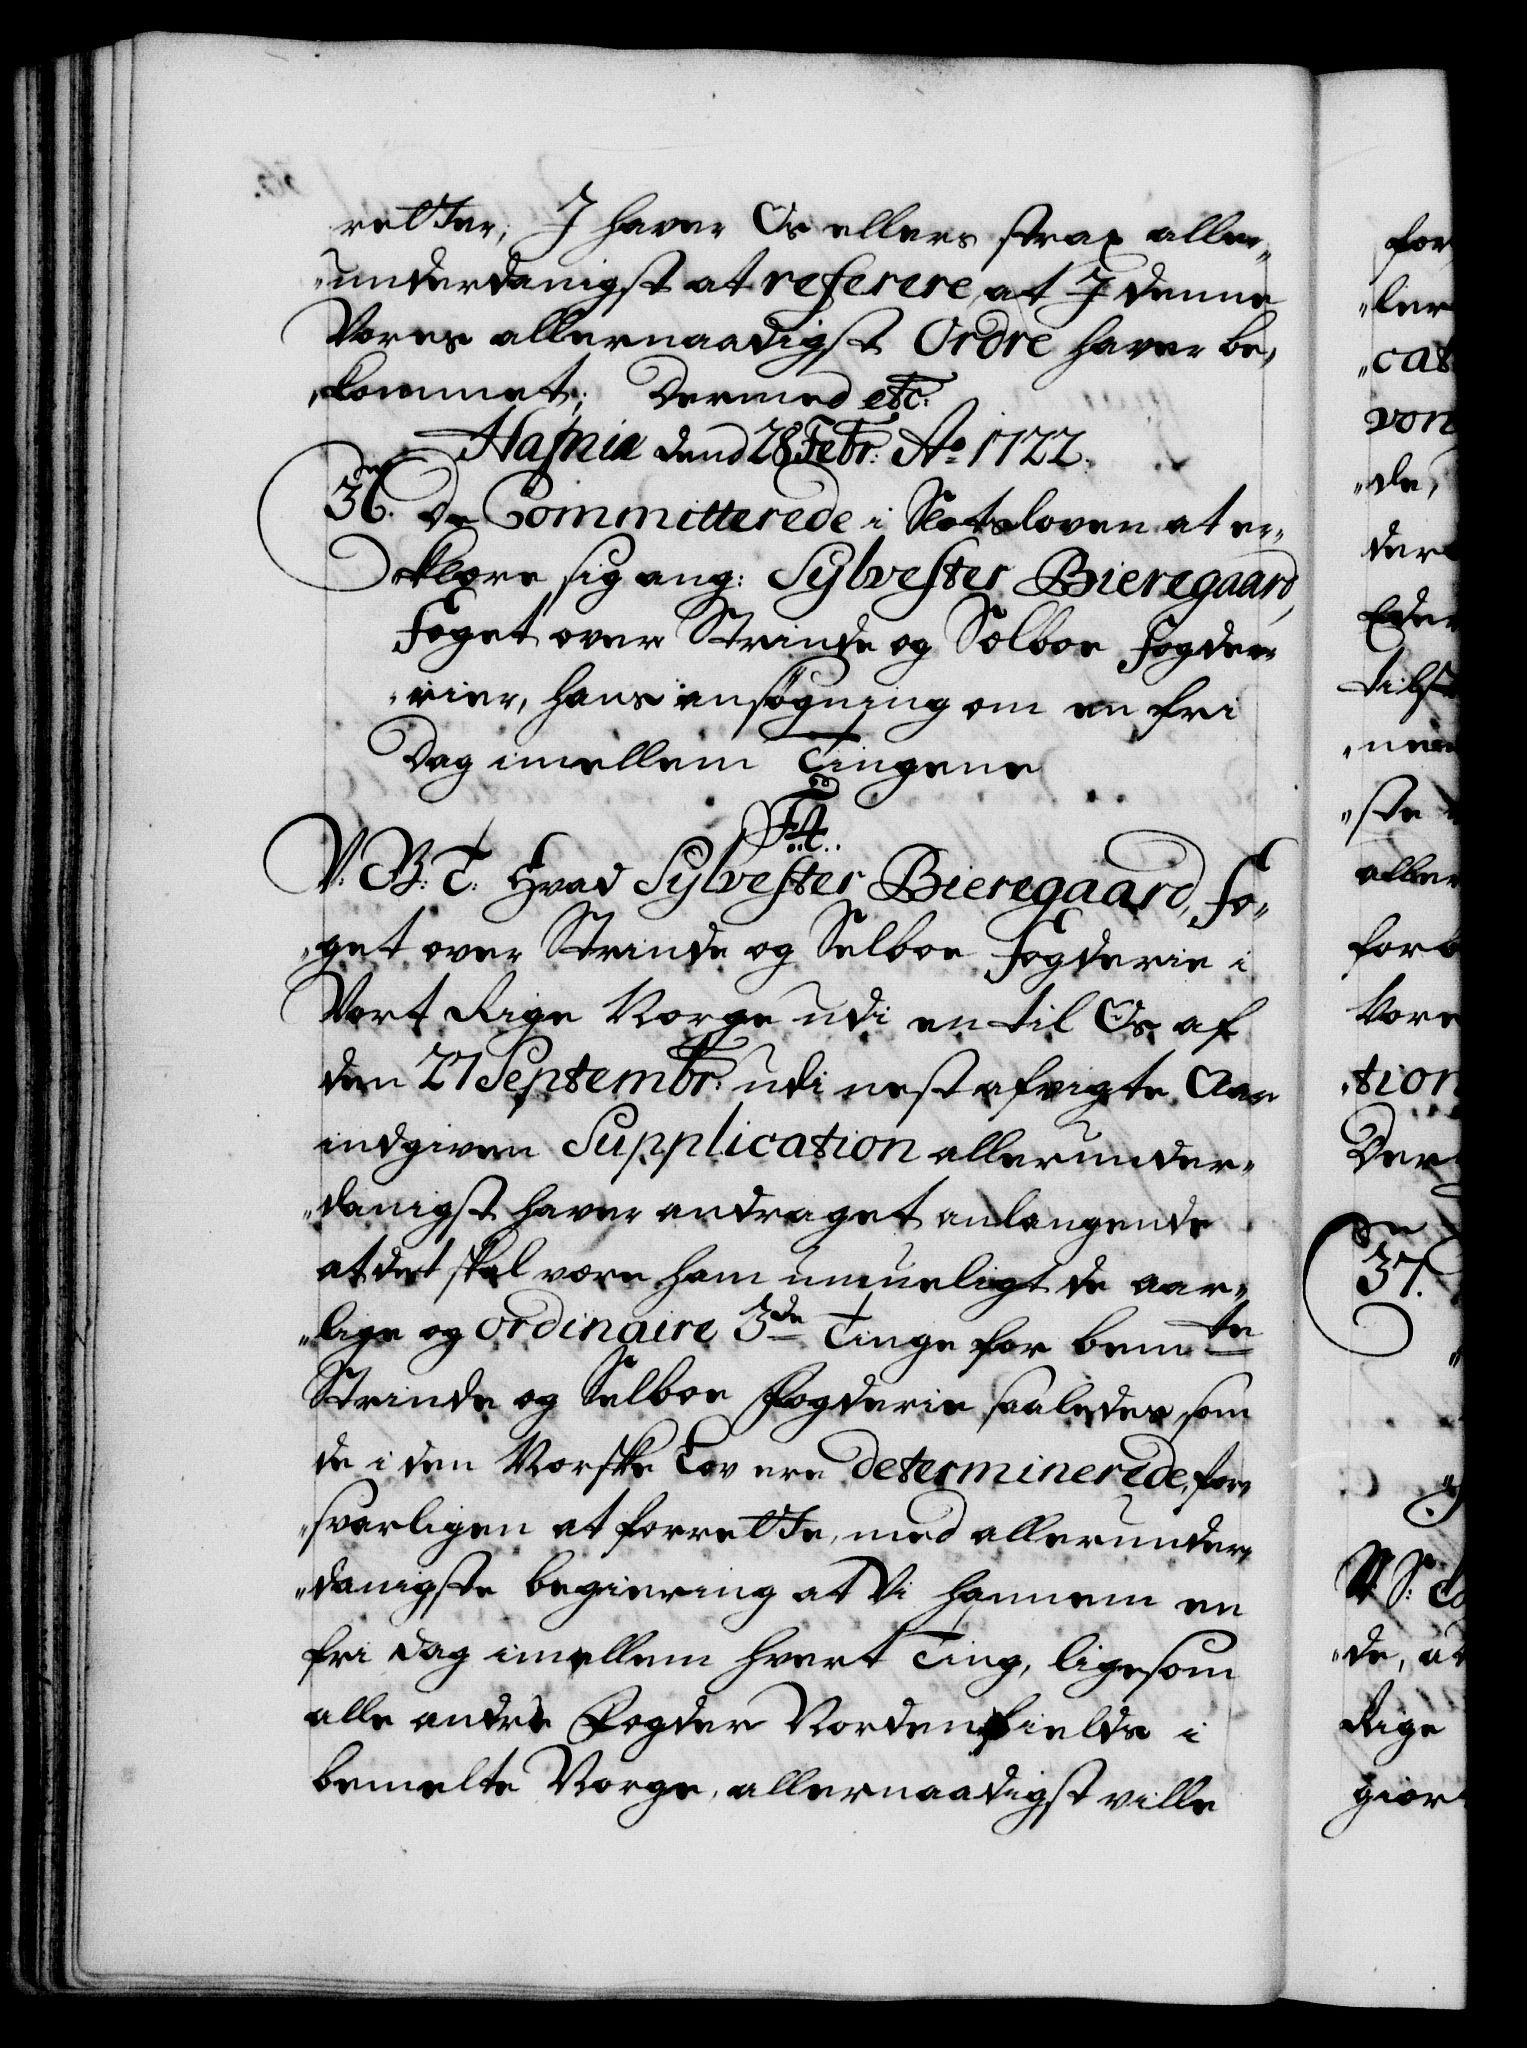 retter, I haver Os ellers strax aller„
„underdanigst at referere, at I denne
Vores allernaadigst Ordre haver be„
„kommet; Dermed etc:
Hafniæ dend 28 Febr: Ao 1722.
36. De Committerede i Slotsloven at er„
„klære sig ang: Sylvester Bieregaard,
Foget over Strinde og Selboe Fogde„
„rier, hans ansøgning om en fri
Dag imellem Tingene
F4.
V: B: T: Hvad Sylvester Bieregaard, Fo„
„get over Strinde og Selboe Fogderie i
Vort Rige Norge udi en til Os af
den 27 Septembr: udi nest afvigte Aar
indgiven Supplication allerunder„
„danigst haver andraget anlangende
at det skal være ham umueligt de aar„
„lige og ordinaire 3de Tinge for bemte
Strinde og Selboe Fogderie saaledes, som
de i den Norske Lov ere determinerede, for„
„svarligen at forrette, med allerunder„
„danigste begiering at Vi hannem en
fri dag imellem hvert Ting, ligesom
alle andre Fogder Nordenfields i
bemelte Norge, allernaadigst ville
for
„ler
„cat
von
„de,
der
Eder
tilst
„nem
„ste
aller
forb
Vore
„tion
Der
37.
V: S:
„de, at
Rige
giort